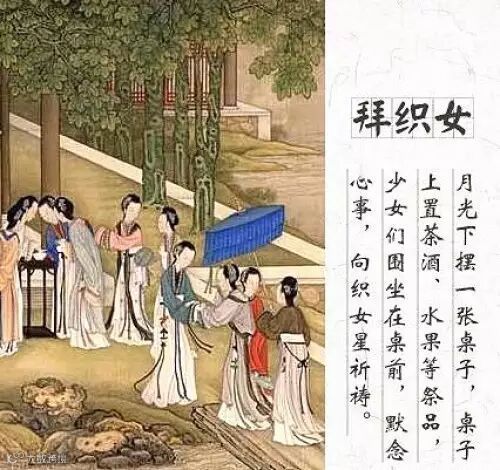 拜织女
月光下摆一张桌子，桌子
上置茶酒、水果等祭品，
少女们围坐在桌前，默念
心事，向织女星祈祷。